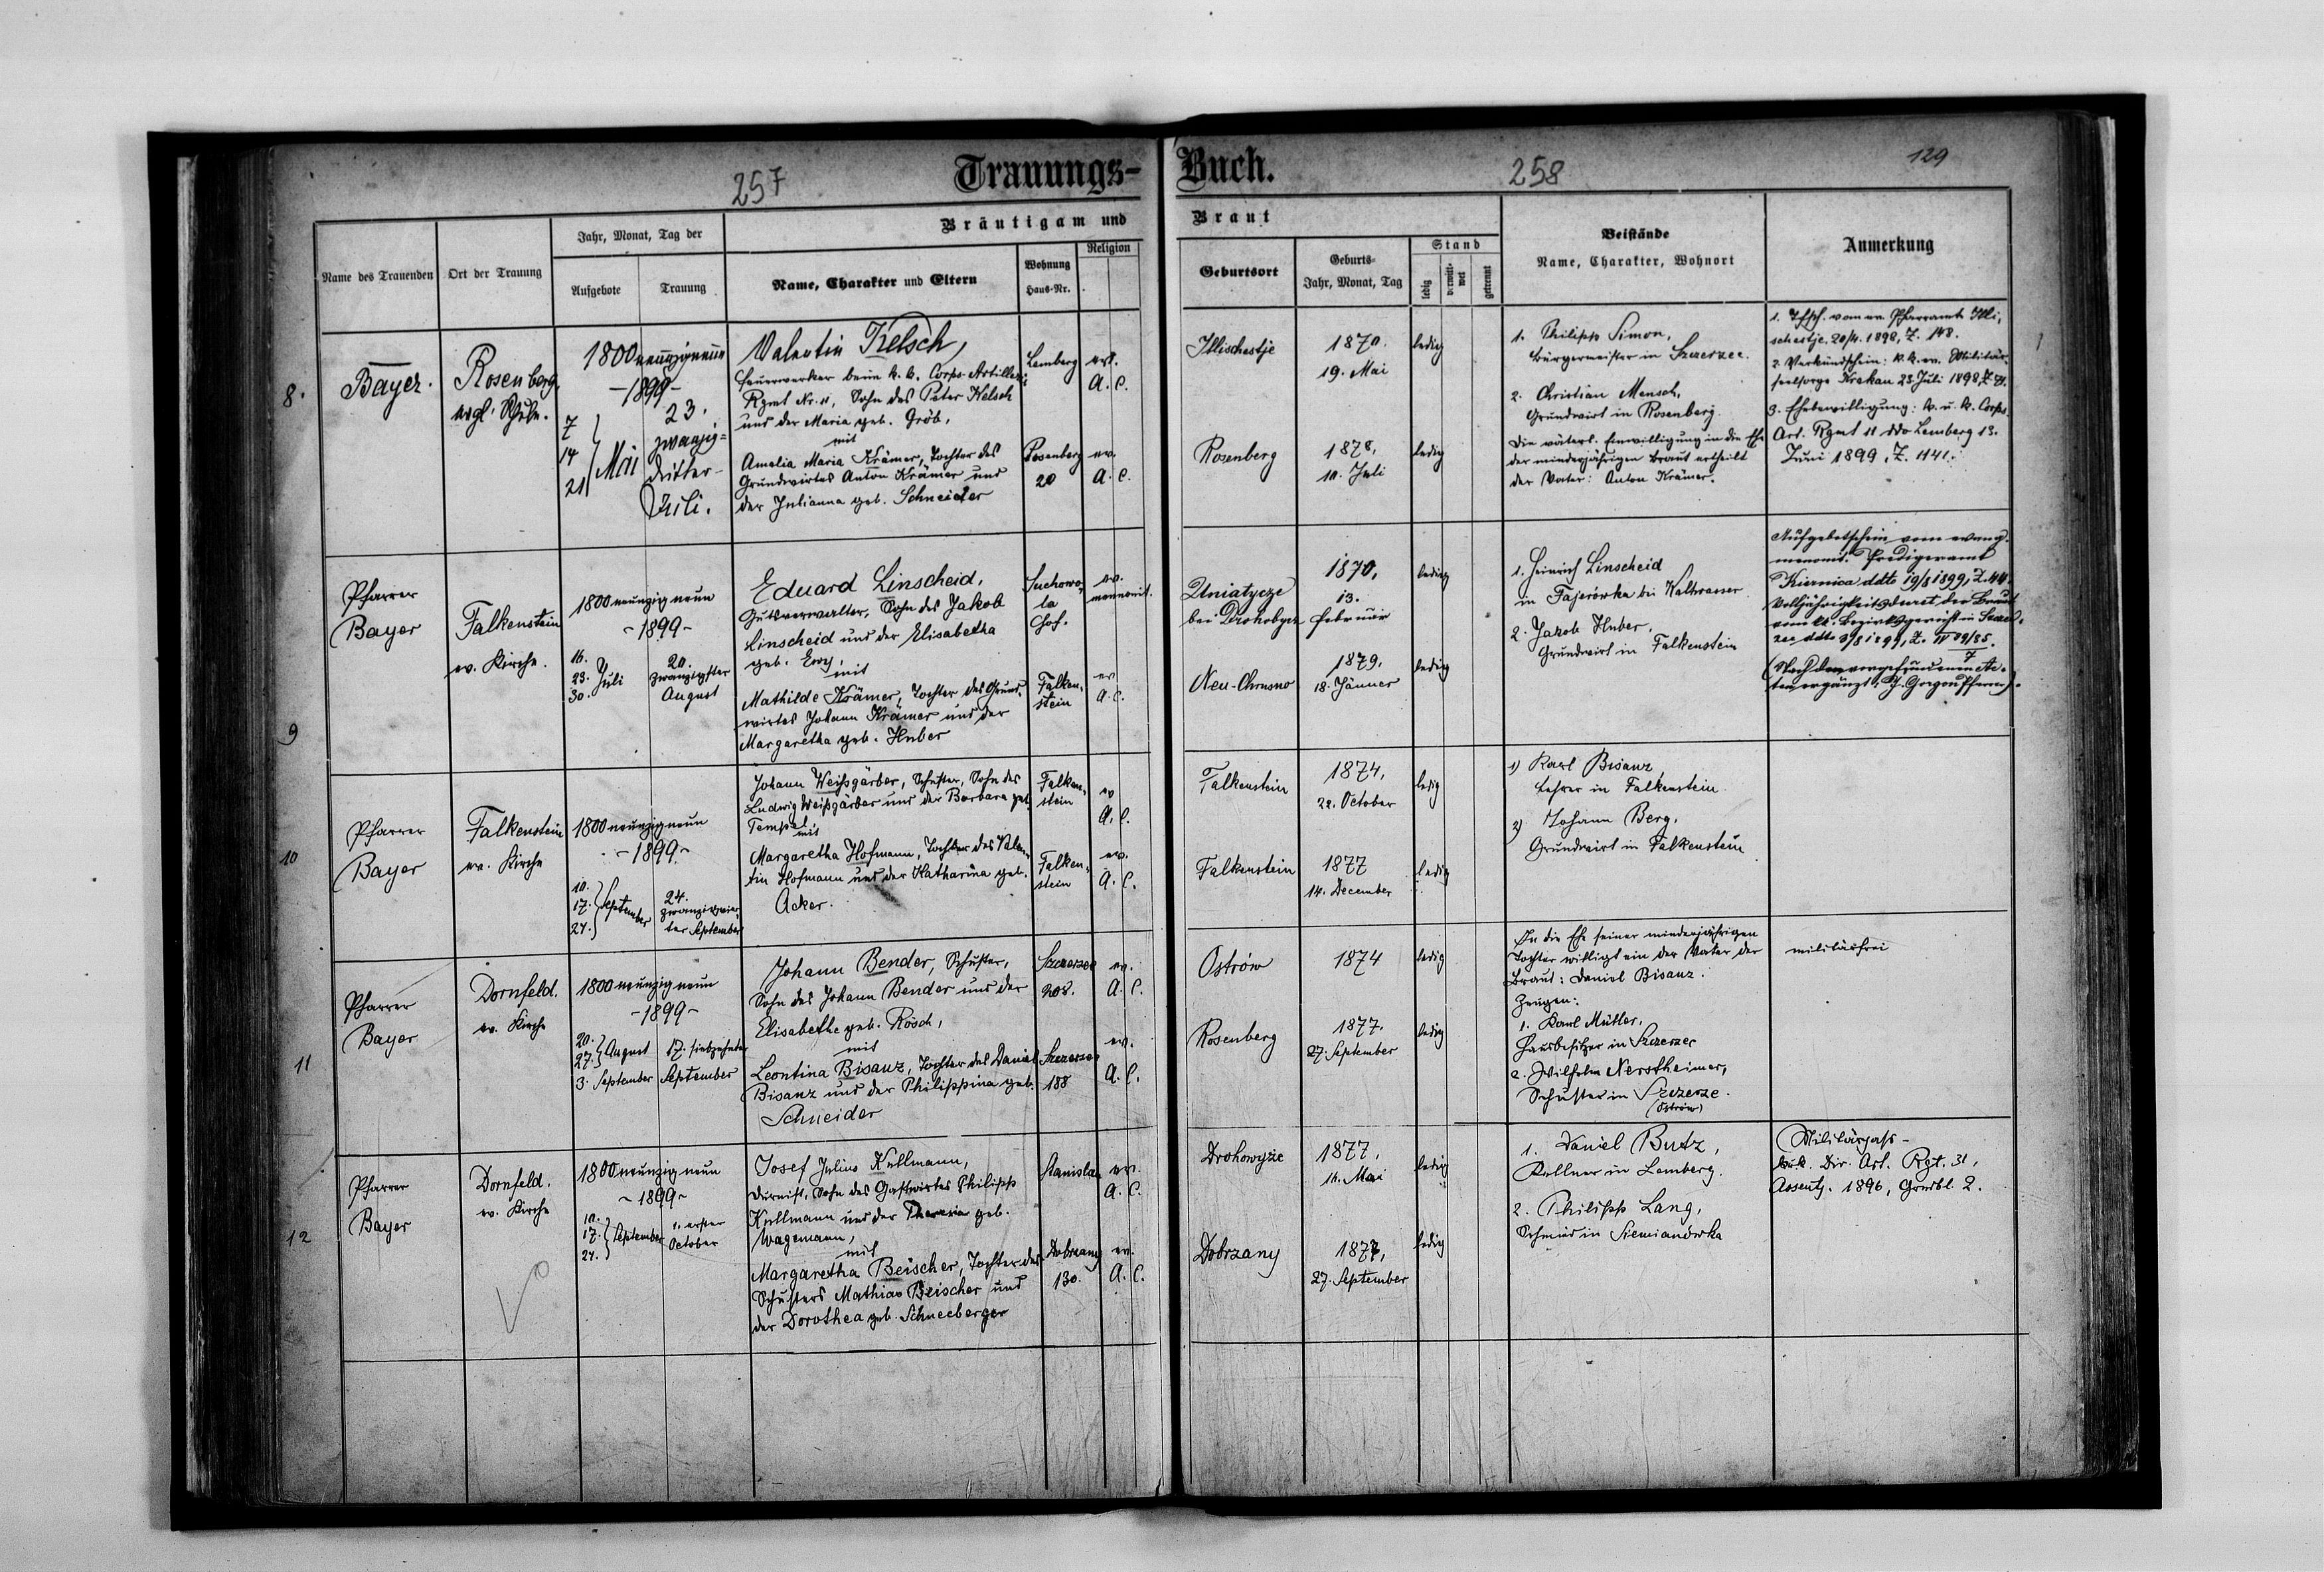 Trauungs-
Buch.
257
258
129
Bräutigam und
Braut
Name des Trauenden
Ort der Trauung
Jahr, Monat, Tag der
Aufgebote
Trauung
Name, Charakter und Eltern
Wohnung
Haus-Nr.
Religion
Geburtsort
Geburts-
Jahr, Monat, Tag
Stand
ledig
verwitt-
wet
getrennt
Beistände
Name, Charakter, Wohnort
Anmerkung
8.
Bayer.
Rosenberg
evgl. Schule.
1800 neunzigneun
-1899-
7
14
21
Mai
23.
zwanzig-
dritter-
Juli.
Valentin Kelsch,
Feuerwerker beim k. k. Corps-Artillerie
Rgmt Nr. 11, Sohn des Peter Kelsch
und der Maria geb. Gröb,
mit
Amalia Maria Krämer, Tochter des
Grundwirtes Anton Krämer und
der Julianna geb. Schneider
Lemberg
evg.
A. C.
Rosenberg
20
ev.
A. C.
Illischestje
1870.
19. Mai
ledig
Rosenberg
1878,
10. Juli
ledig
1. Philipp Simon,
Bürgermeister in Szczerzec.
2. Christian Mensch,
Grundwirt in Rosenberg.
Die väterl. Einwilligung in die Ehe
der minderjährigen Braut ertheilt
der Vater: Anton Krämer.
1. Tfsch. vom ev. Pfarramte Illi-
schestje. 20/4. 1898, Z. 148.
2. Verkündschein: k. k. ev. Militär-
seelsorge Krakau 23. Juli 1898, Z.
3. Ehebewilligung: k. u. k. Corps
Art. Rgmt 11 ddo Lemberg 13.
Juni 1899, Z. 1141.
9
Pfarrer
Bayer
Falkenstein
ev. Kirche.
1800 neunzig neun
-1899-
16.
23.
30.
Juli
20.
zwanzigster
August
Eduard Linscheid,
Gutsverwalter, Sohn des Jakob
Linscheid und der Elisabetha
geb. Ewy,
mit
Mathilde Krämer, Tochter des Grund-
wirtes Johann Krämer und der
Margaretha geb. Huber
Suchowo-
la
Hof.
ev.
mennonit.
Falken-
stein
ev
A. C.
Uniatycze
bei Drohobycz
1870,
13.
Februar
ledig
Neu-Chrusno
1879.
18. Jänner
ledig
1. Heinrich Linscheid
in Fajerówka bei Kaltwasser
2. Jakob Huber,
Grundwirt in Falkenstein
Aufgebotschein vom evang.
mennonit. Predigeramt
Kiernica ddto 19/8 1899, Z. 44.
Volljährigkeitsdecret der Braut
vom kk. Bezirksgericht in Szczer-
zec ddto 3/8 1899, Z. IV 09/85.
7
(Nach den vorgefundenen Ak-
ten ergänzt,
10
Pfarrer
Bayer
Falkenstein
ev. Kirche
1800 neunzig neun
-1899-
10.
17.
24.
September
24.
zwanzigvier-
ter September
Johann Weißgärber, Schuster, Sohn des
Ludwig Weißgärber und der Barbara geb.
Tempel
mit
Margaretha Hofmann, Tochter des Valen-
tin Hofmann und der Katharina geb.
Acker.
Falken-
stein
ev
A. C.
Falken-
stein
ev.
A. C.
Falkenstein
1874,
22. October
ledig
Falkenstein
1877
14. December
ledig
1) Karl Bisanz
Lehrer in Falkenstein
2) Johann Berg,
Grundwirt in Falkenstein
11
Pfarrer
Bayer
Dornfeld.
ev. Kirche
1800 neunzig neun
-1899-
20.
27.
August
3. September
17. siebzehnter
September
Johann Bender, Schuster,
Sohn des Johann Bender und der
Elisabethe geb. Rösch,
mit
Leontina Bisanz, Tochter des Daniel
Bisanz und der Philippina geb.
Schneider
Szczerzec
208.
ev.
A. C.
Szczerzec
188
ev.
A. C.
Ostrów
1874
ledig
Rosenberg
1877.
27. September
ledig
In die Ehe seiner minderjährigen
Tochter willigt ein der Vater der
Braut: Daniel Bisanz.
Zeugen:
1. Karl Müller,
Hausbesitzer in Szczerzec
2. Wilhelm Nerstheimer,
Schuster in Szczerze.
(Ostrów)
militärfrei
12
Pfarrer
Bayer
Dornfeld.
ev. Kirche
1800 neunzig neun
-1899-
10.
17.
24.
September
1. erster
October
Josef Julius Kullmann,
Diurnist, Sohn des Gastwirtes Philipp
Kullmann und der Theresia geb.
Wagemann,
mit
Margaretha Beischer, Tochter des
Schusters Mathias Beischer und
der Dorothea geb. Schneeberger
Stanislau
ev.
A. C.
Dobrzany
130.
ev.
A. C.
Drohowyże
1877,
16. Mai
ledig
Dobrzany
1877,
27. September
ledig
1. Daniel Butz,
Kellner in Lemberg.
2. Philipp Lang,
Schmied in Siemianówka
Militärpass-
k.u.k. Div. Art. Rgt. 31,
Assentj. 1896, Grndbl. 2.